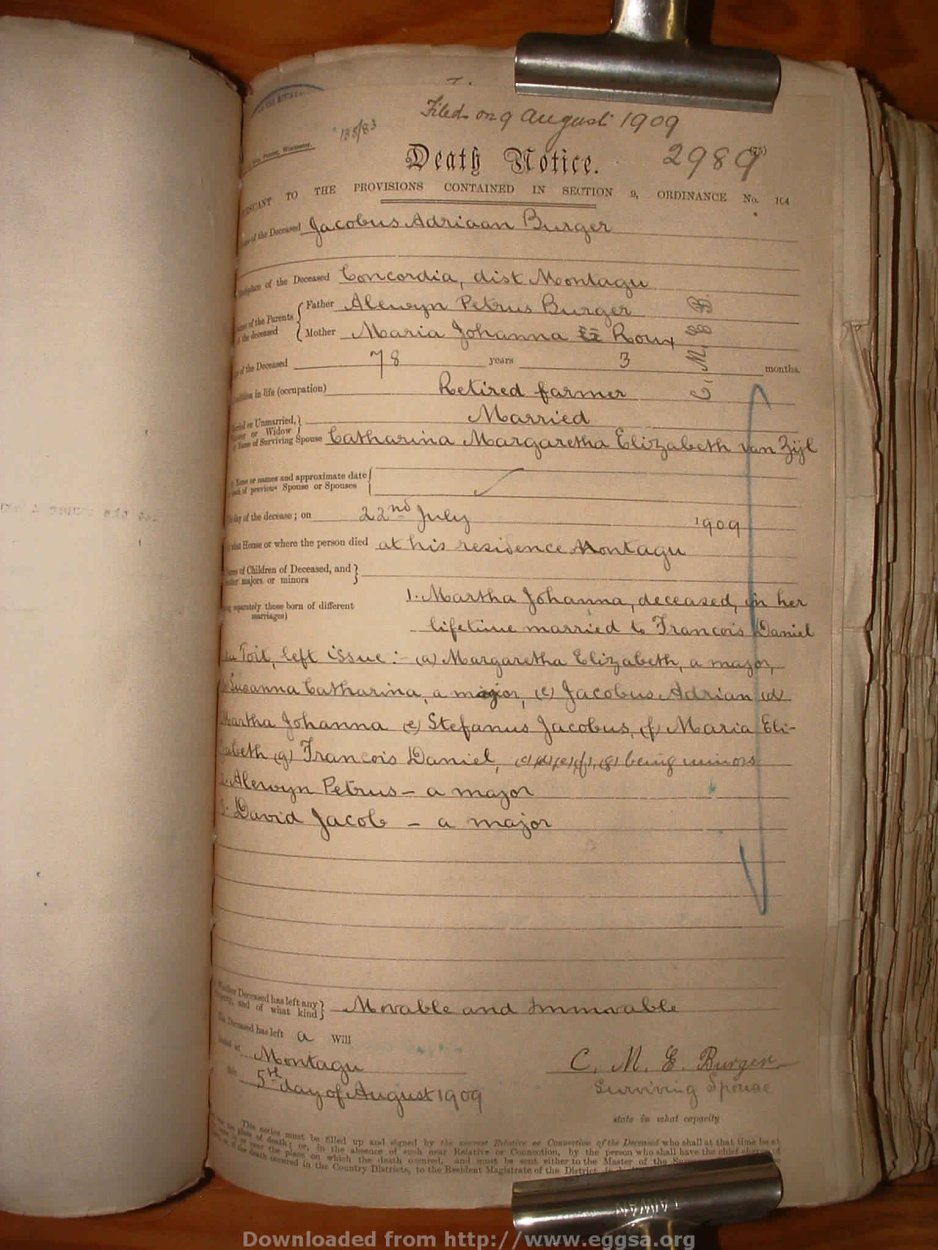 Filed on 9 August 1909
138/83
Death Notice.
2989
TO THE PROVISIONS CONTAINED IN SECTION 9, ORDINANCE No. 104
of the Deceased Jacobus Adriaan Burger
of the Deceased Concordia, dist Montagu
of the Parents of the deceased { Father Alewyn Petrus Burger
Mother Maria Johanna Roux
C. M. E. B.
of the Deceased 78 years 3 months.
in life (occupation) Retired farmer
or Unmarried, Married
or Widow
of Surviving Spouse Catharina Margaretha Elizabeth van Zijl
Name or names and approximate date
of previous Spouse or Spouses
day of the decease; on 22nd July 1909
House or where the person died at his residence Montagu
of Children of Deceased, and
majors or minors
separately those born of different
marriages)
1. Martha Johanna, deceased, in her
lifetime married to Francois Daniel
Toit, left issue :- (a) Margaretha Elizabeth, a major,
Susanna Catharina, a major, (c) Jacobus Adrian (d)
Martha Johanna (e) Stefanus Jacobus, (f) Maria Eli-
zabeth (g) Francois Daniel, (c) (d) (e) (f), (g) being minors
Alewyn Petrus - a major
David Jacob - a major
Deceased has left any
and of what kind } Movable and Immovable
Deceased has left a Will
Montagu
5th day of August 1909
C. M. E. Burger
Surviving Spouse
state in what capacity
This notice must be filled up and signed by the nearest Relative or Connection of the Deceased who shall at that time be at
place of death; or, in the absence of such near Relative or Connection, by the person who shall have the chief charge of
the place on which the death occurred, and must be sent either to the Master of the
the death occurred in the Country Districts, to the Resident Magistrate of the District
Downloaded from http://www.eggsa.org